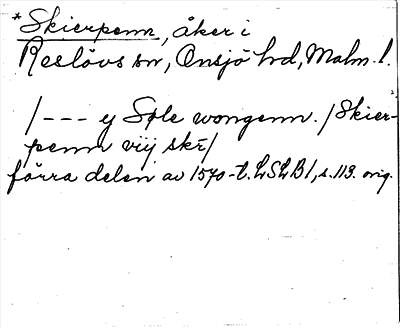 *Skierpenn, åker i
Reslövs sn, Onsjö hd, Malm. l.
/--- y Sole wongenn. /Skier-
penn viij skr̄/
förra delen av 1570-t. LSLB1, s. 113. orig.